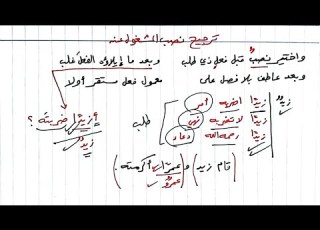 ترجيح نصب المشغول عنه
واختير نصب قبل فعل ذي طلب وبعد ما إيلاؤه الفعل غلب
وبعد عاطف بلا فصل على معمول فعل مستقر أولا
زيدًا اضربه أمر
زيدٌ زيدًا لا تضربه نهي طلب
زيدًا رحمه الله دعاء
أزيدًا ضربته ؟
زيدٌ
(قام زيد) و (عمرًا أكرمته.)
عمرٌو